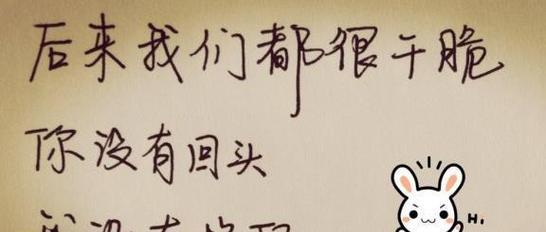 后来我们都很干脆
你没有回头
我没有
Hi,